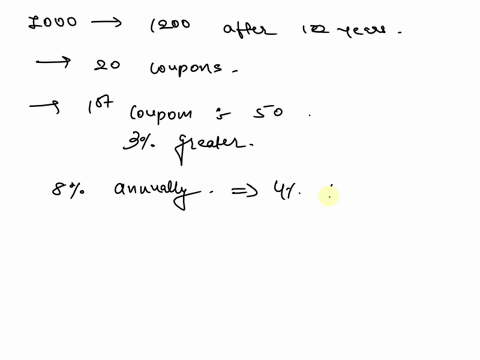 1000 → 1200 after 10 years.
→ 20 coupons.
→ 1st coupon is 50.
3% greater.
8% annually. ⇒ 4%